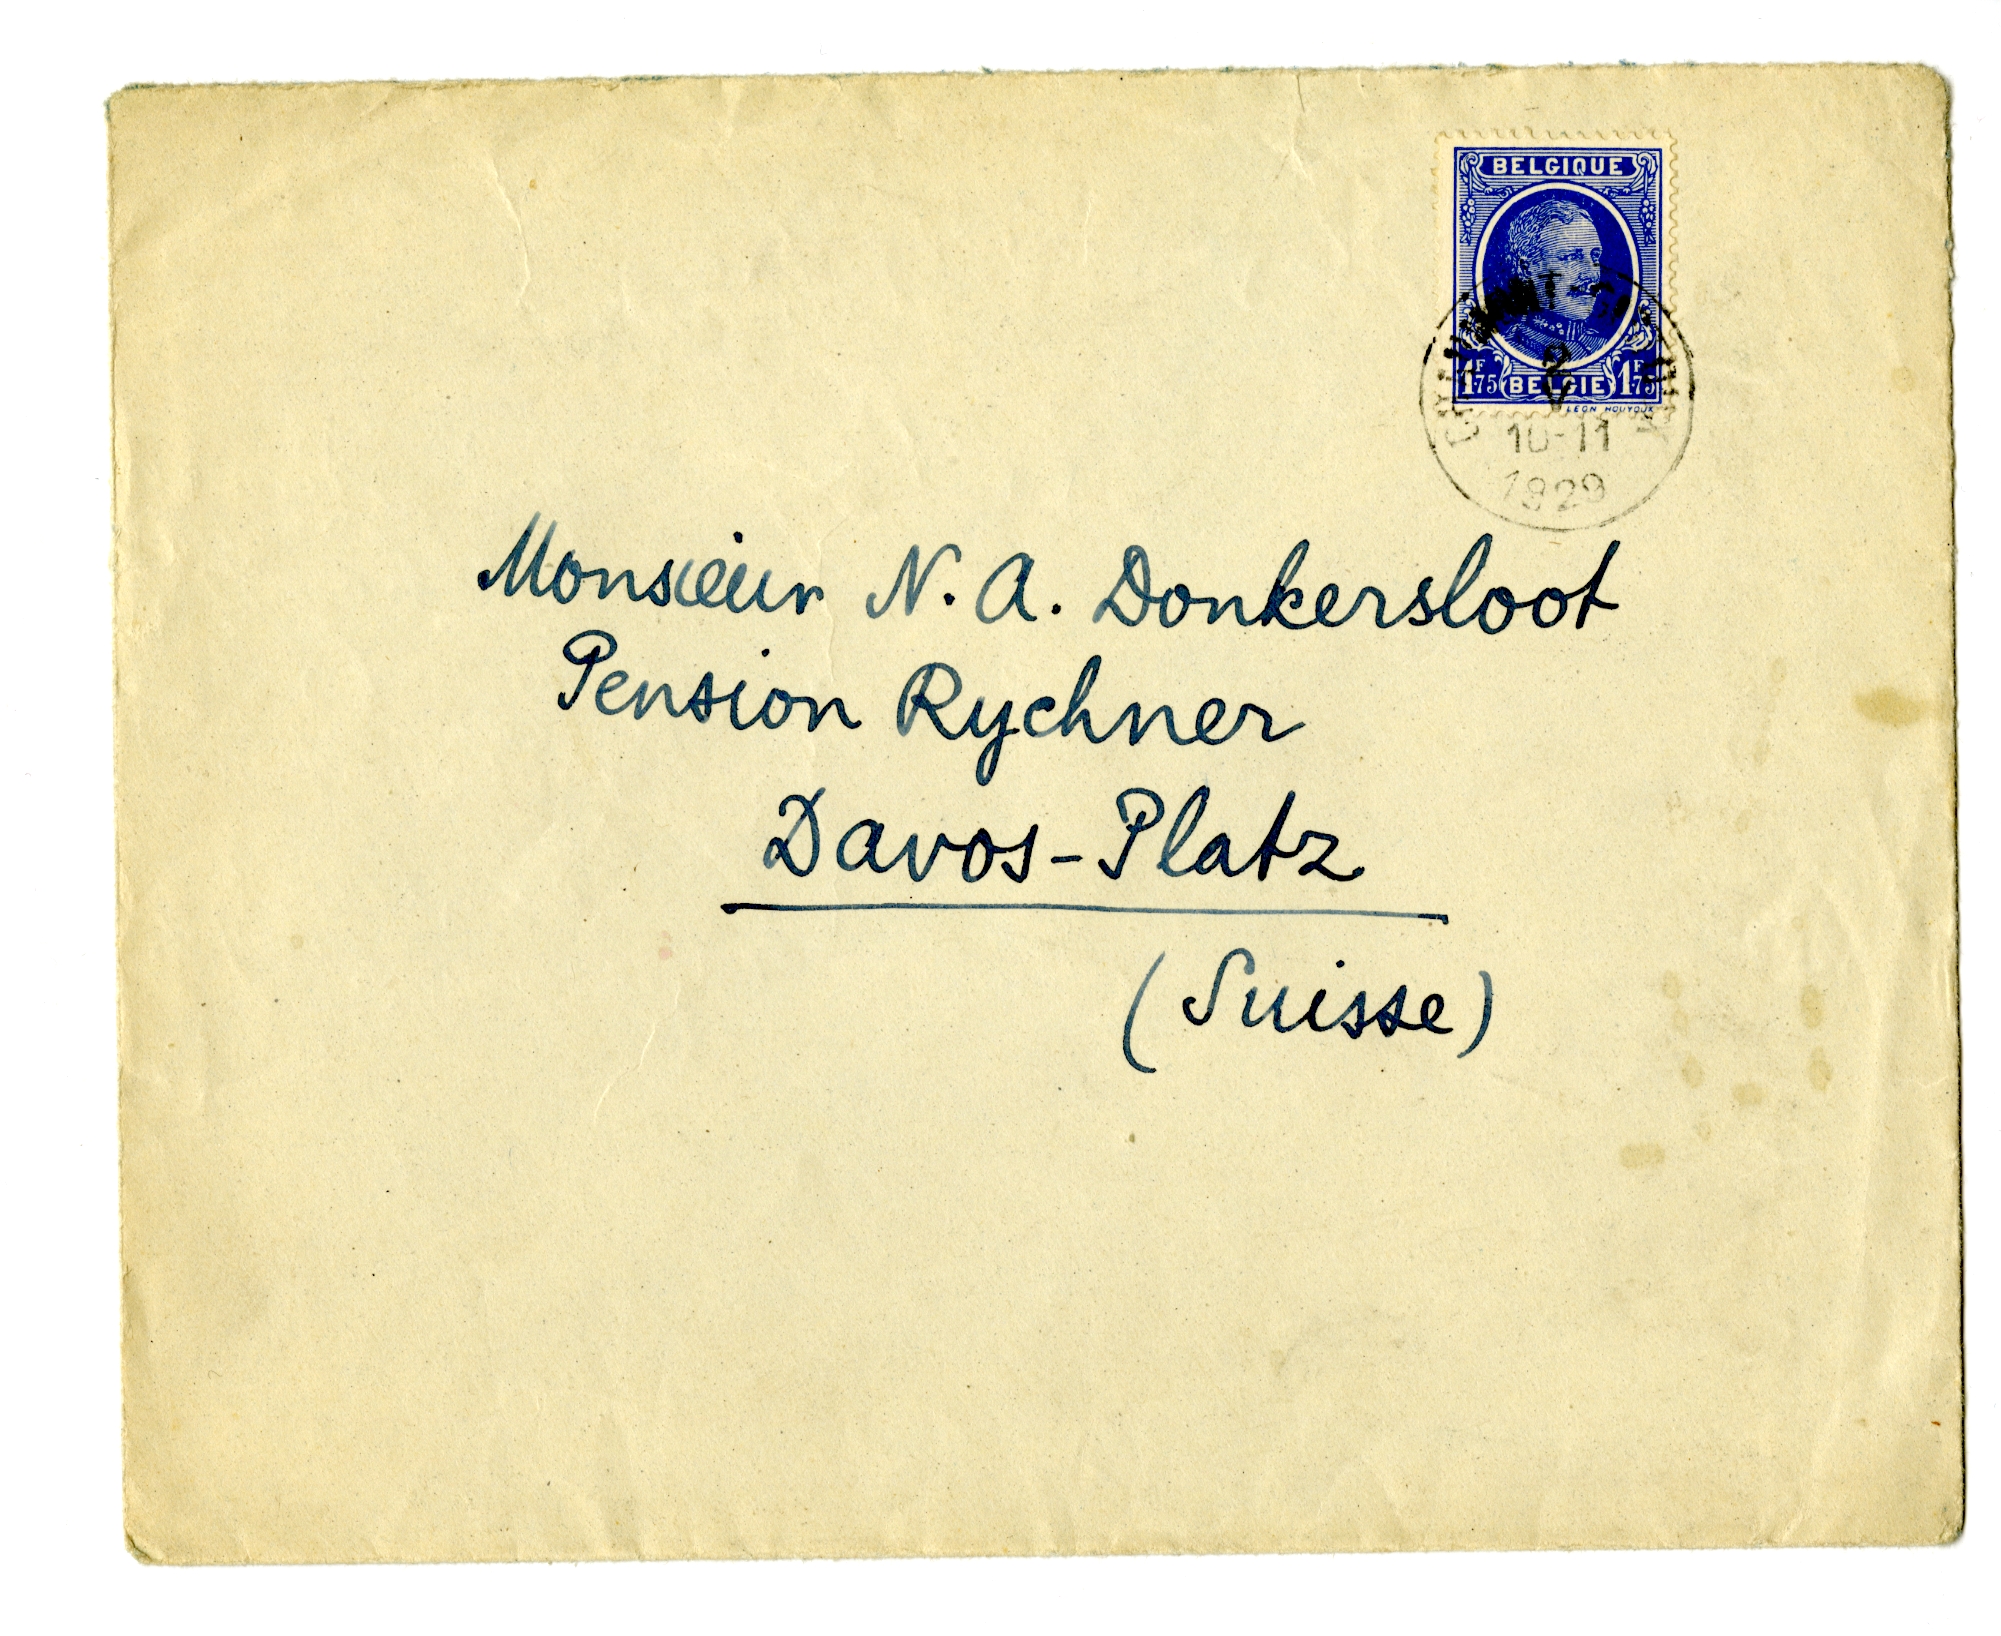 BELGIQUE
1F75 BELGIE 1F75
LEON HOUYOUX
2
V
10-11
1929
Monsieur N. A. Donkersloot
Pension Rychner
Davos-Platz
(Suisse)